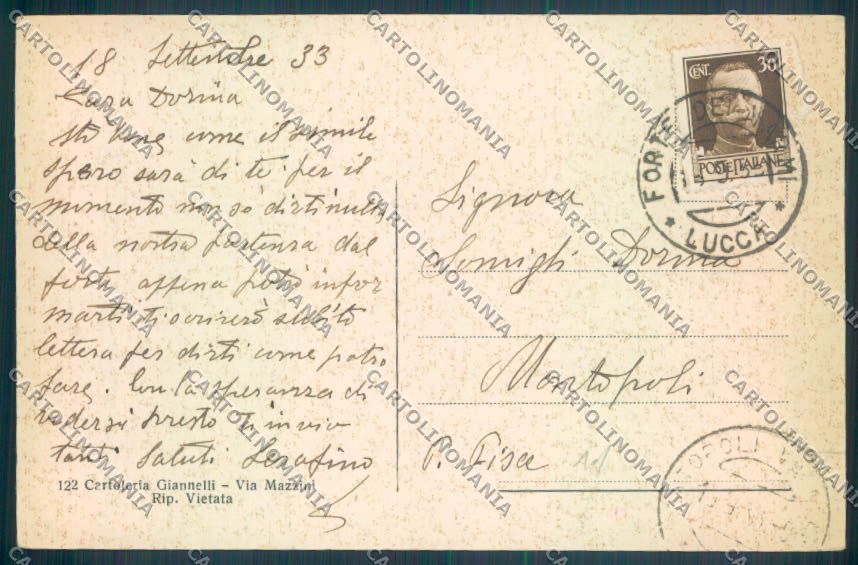 18 Settembre 33
Cara Dorina
sto bene come il simile
spero sarà di te per il
momento non sò dirti nulla
della nostra partenza dal
forte appena potrò infor
marti ti scriverò subito
lettera per dirti come potro
fare. Con la speranza di
vedersi presto ti invio
tanti Saluti Serafino
122 Cartoleria Giannelli - Via Mazzini
Rip. Vietata
CENT. 30
POSTE ITALIANE
FORTE DEI MARMI
* LUCCA *
Signora
Somigli Dorina
Montopoli
P. Pisa
CARTOLINOMANIA